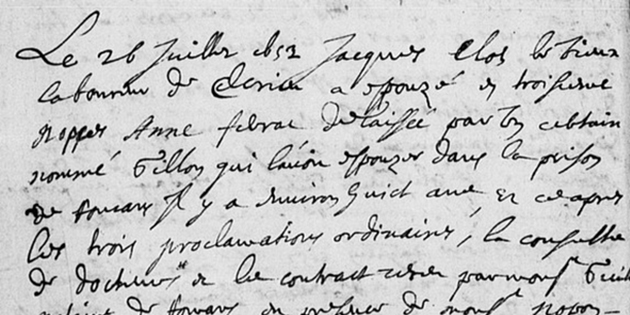 Le 26 Juillet 1652 Jacques Clos le vieux
laboureur de a espouzé en troisieme
noppes Anne delaissée par un certain
nommé Tillon qui l'avoit espouzee dans la prison
de il y a environ huict ans et ce apres
les trois proclamations ordinaires, la consulte
de docteurs et le contract par monsr
de en presence de monsr